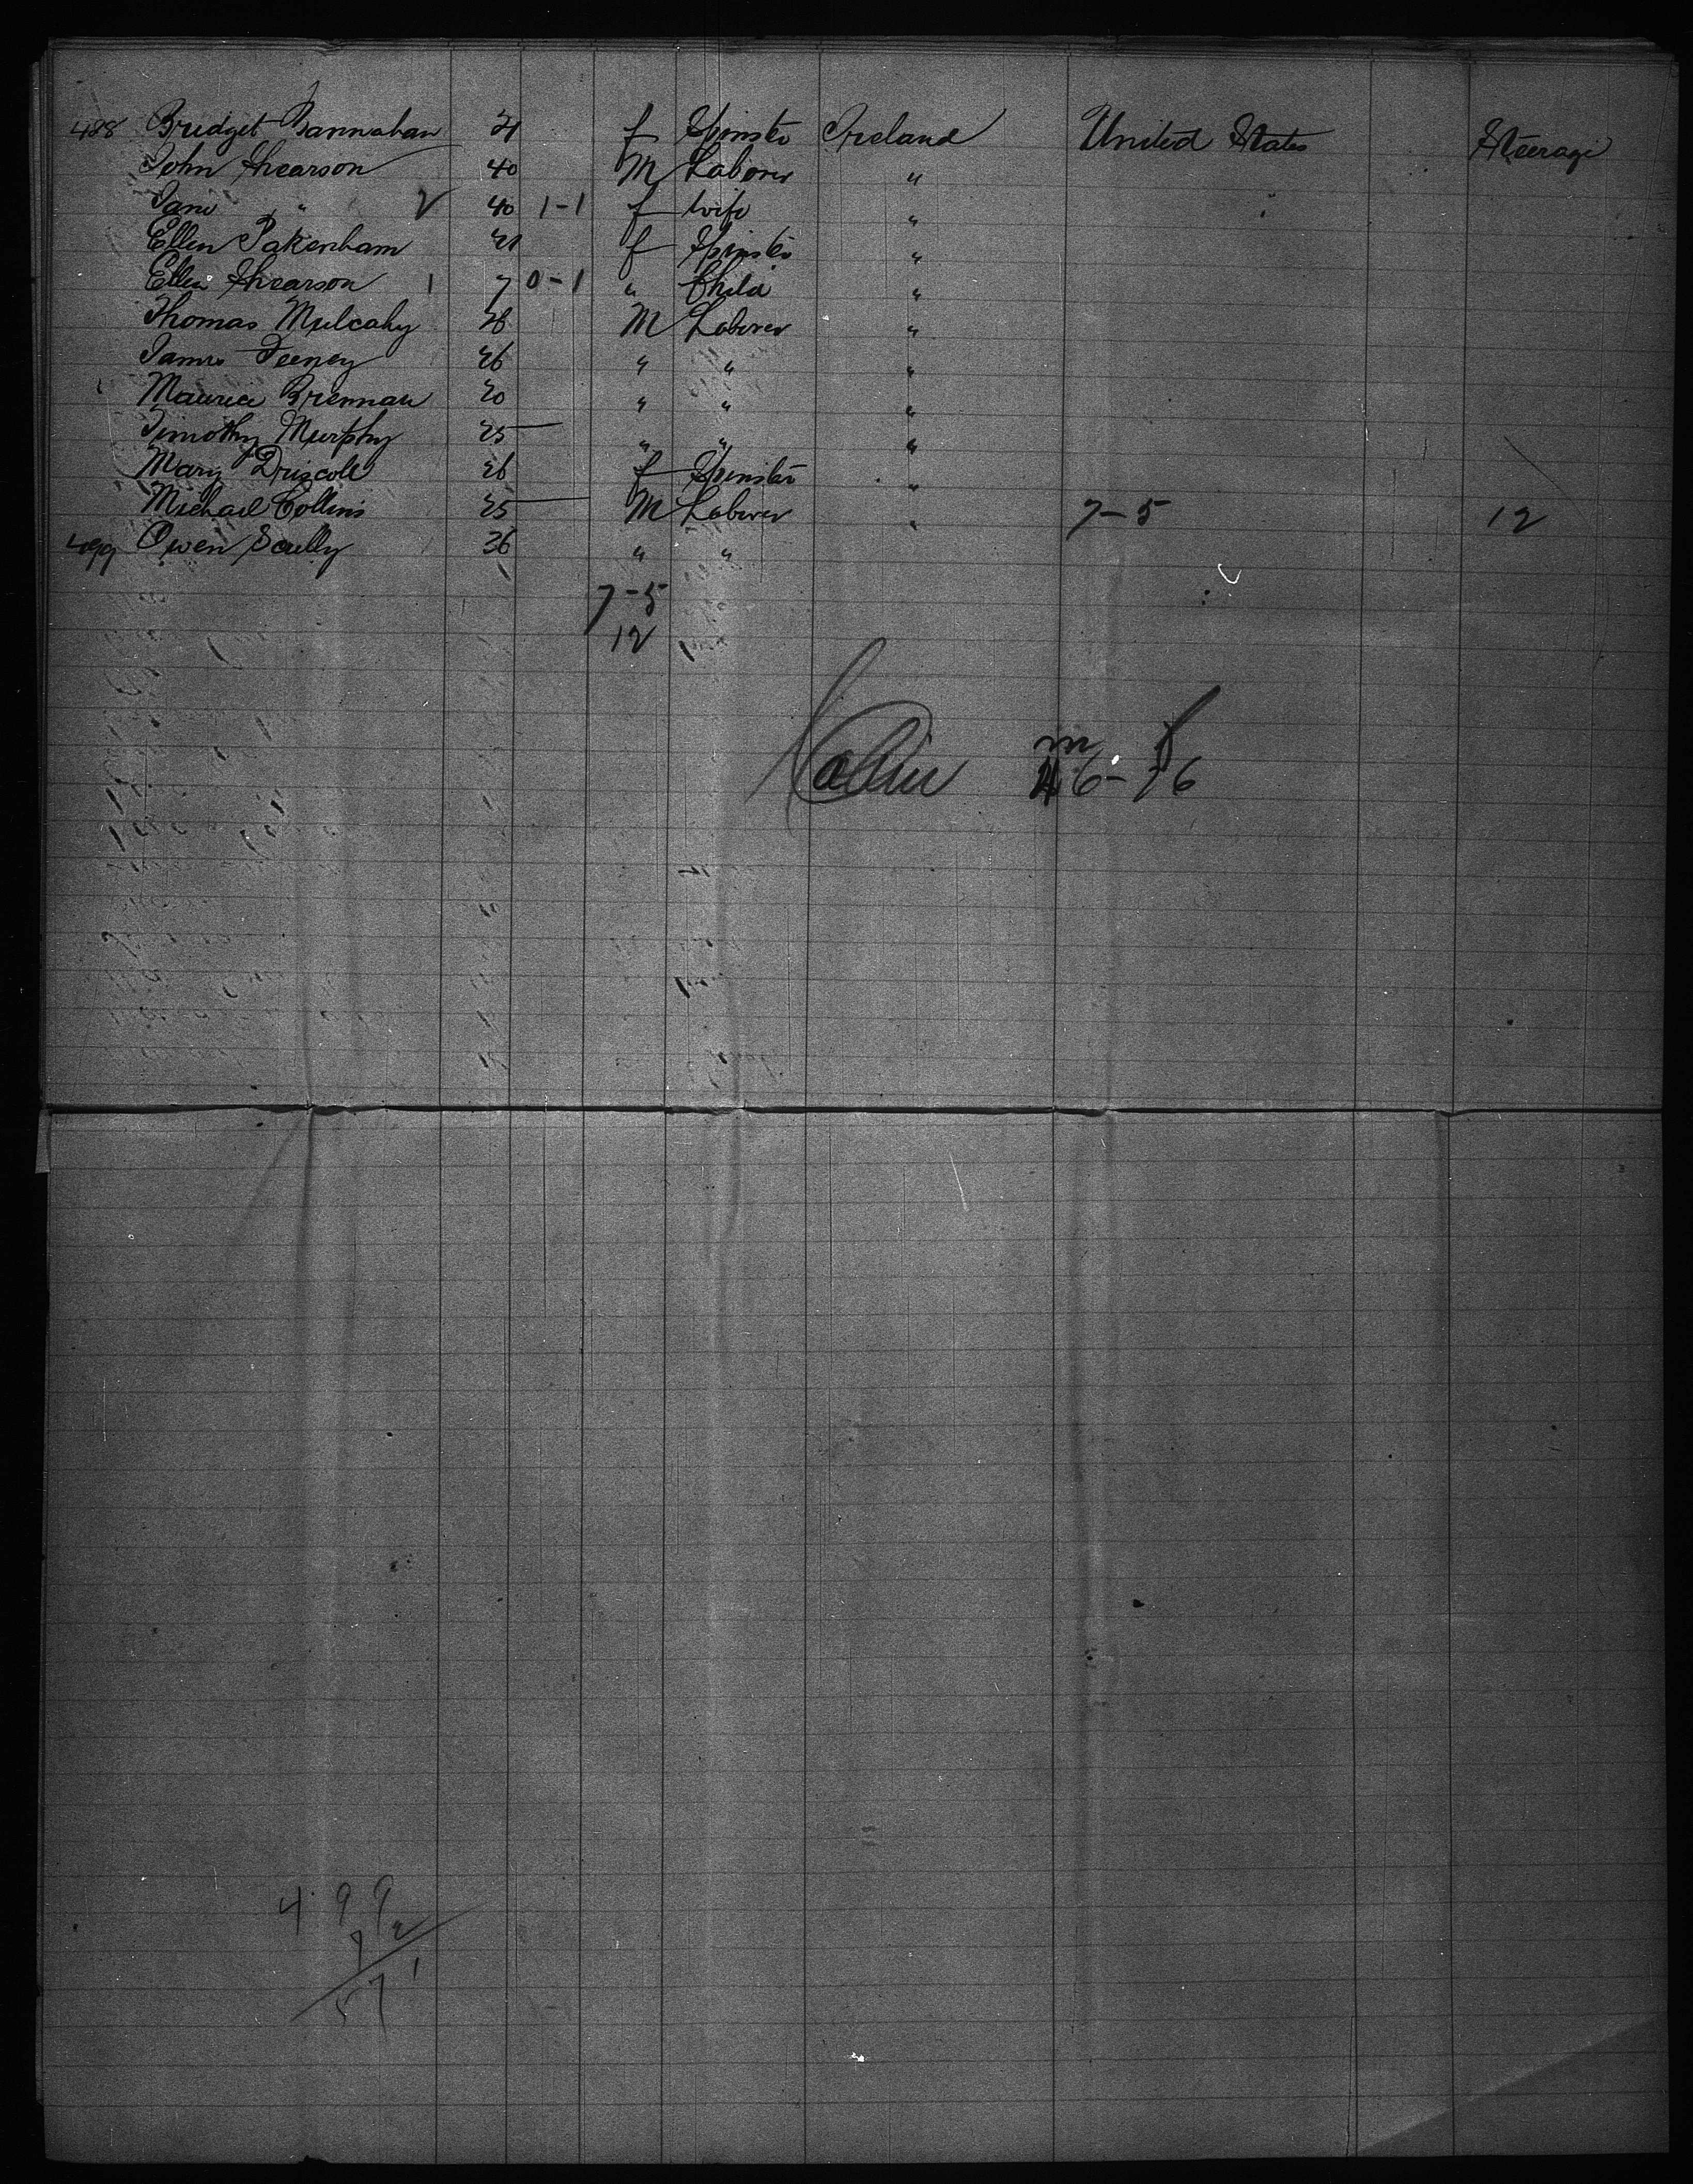 488 Bridget Bannahan 21 f Spinstr Ireland United States Steerage
John Shearson 40 M Laborer "
Jane " 2 40 1-1 f Wife "
Ellen Pakenham 21 f Spinstr "
Ellen Shearson 1 7 0-1 " Child "
Thomas Mulcahy 28 M Laborer "
James Feeney 26 " " "
Maurice Brennan 20 " " "
Timothy Murphy 25 " " "
Mary Driscoll 26 f Spinstr "
Michael Collins 25 M Laborer " 7-5 12
499 Owen Scully 36 " "
7-5
12
m f
46-
499
72
571